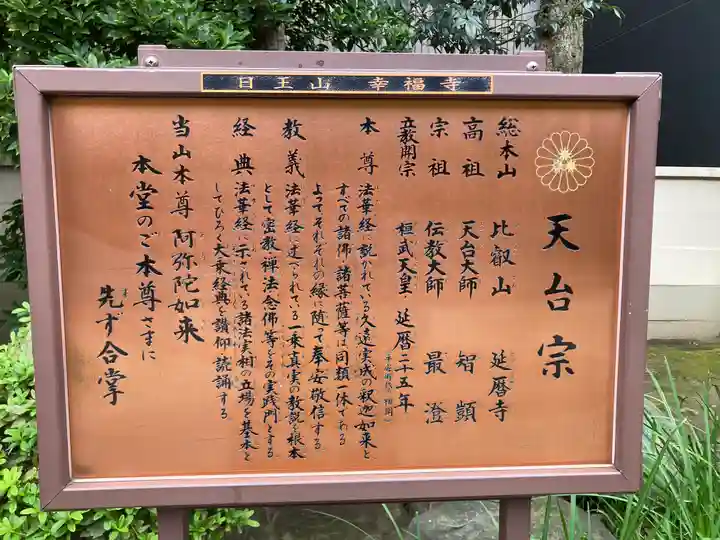 日王山　幸福寺
天台宗
総本山　比叡山　延暦寺
高祖　天台大師　智顗
宗祖　伝教大師　最澄
立教開宗　桓武天皇・延暦二十五年
本尊　法華経に説かれている久遠実成の釈迦如来と
すべての諸佛・諸菩薩等は同類一体である
よってそれぞれの縁に随って奉安敬信する
教義　法華経に述べられている一乗真実の教説を根本
として密教禅法念佛等をその実践門とする
経典　法華経に示されている諸法実相の立場を基本と
してひろく大乗経典を讃仰読誦する
当山本尊　阿弥陀如来
本堂のご本尊さまに
先ず合掌